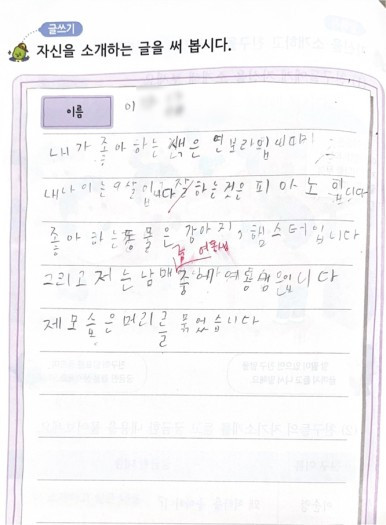 글쓰기
자신을 소개하는 글을 써 봅시다.
이름 이
내가 좋아하는 색은 연보라입니다
내나이는9살입니다 잘하는것은 피아노 입니다
좋아하는동물은 강아지, 햄스터입니다
그리고 저는남매중에
제모습은머리를 묶었습니다